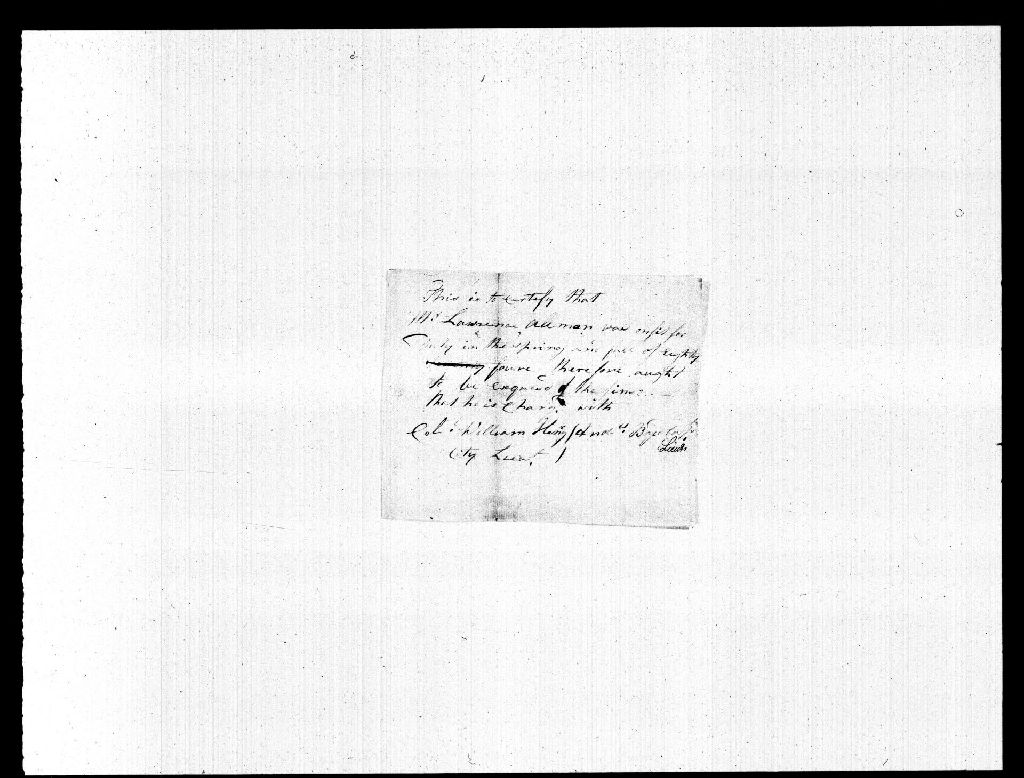 This is to certify that
Mr Lawrence Allman was unfit for
Duty in the Spring in year of Eighty
foure therefore aught
to be exqused of the fine
that he is Charg with
Colo William Henry Andw Boyer
City Lieut Lieut